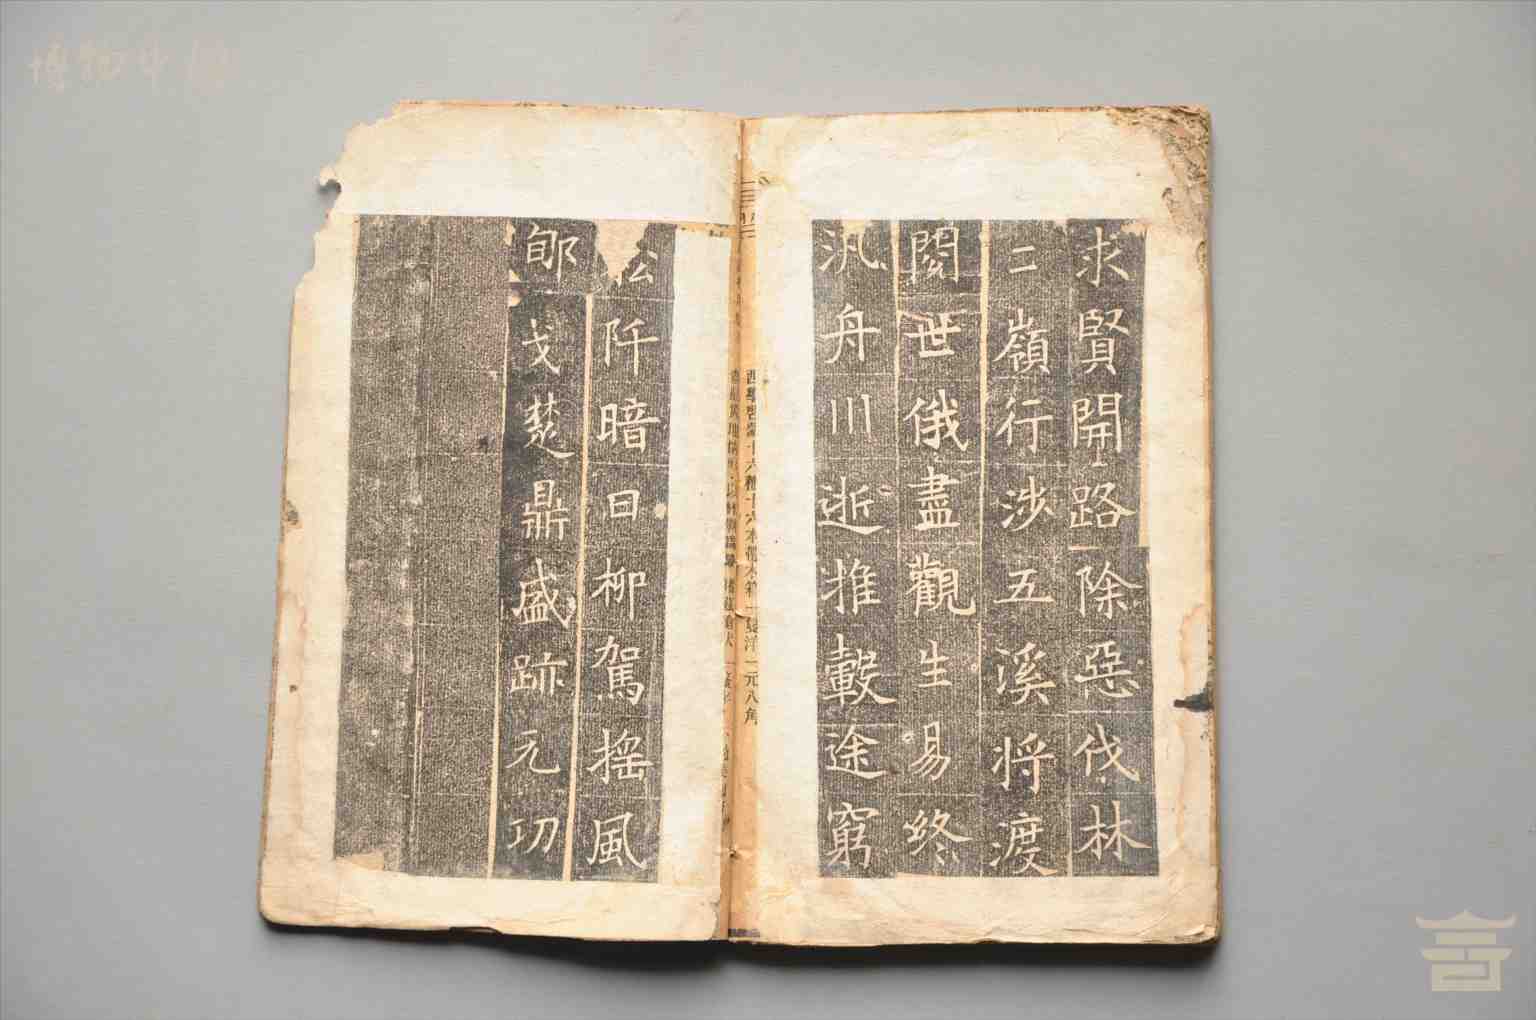 求賢開路除惡伐林
二嶺行涉五溪將渡
閱世俄盡觀生易終
汎舟川逝推轂途窮
松阡暗日柳駕搖風
郇戈楚鼎盛跡元功
西學啓蒙十六種十六本帶木箱一隻洋一元八角
博物中国